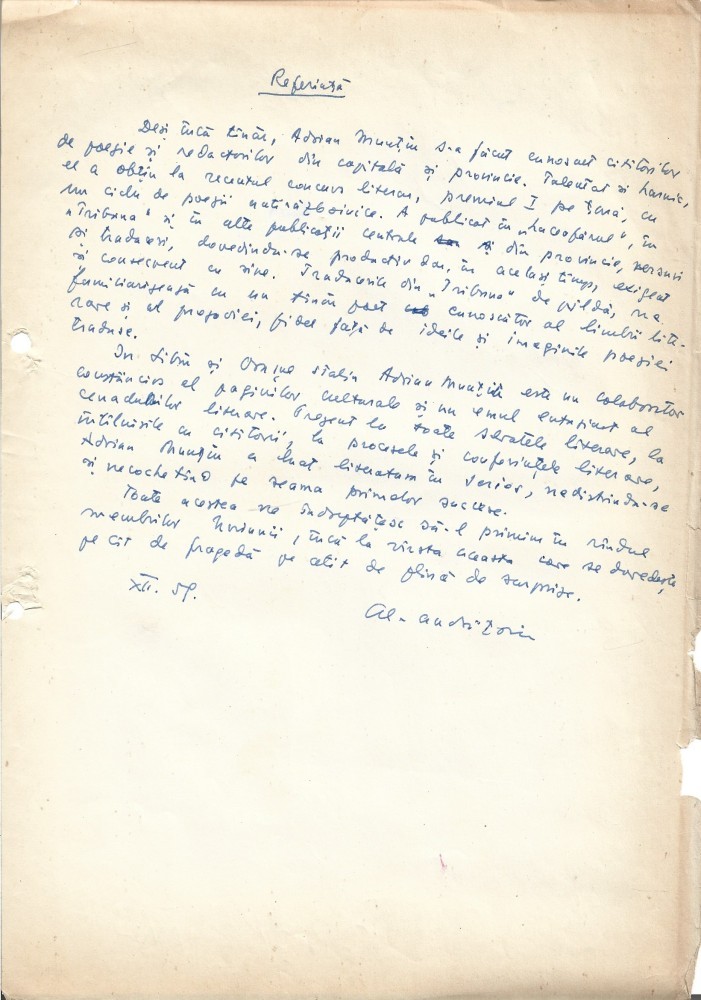 Referință
Deși încă tînăr, Adrian Munțiu s-a făcut cunoscut cititorilor
de poezie și redactorilor din capitală și provincie. Talentat si harnic,
el a obțin la recentul concurs literar, premiul I pe țară, cu
un ciclu de poezii antirăzboinice. A publicat în „Luceafărul”, în
„Tribuna” și în alte publicații centrale și din provincie, versuri
și traduceri, dovedindu-se productiv dar, în același timp, exigent
și consecvent cu sine. Traducerile din „Tribuna” de pildă, ne
familiarizează cu un tînăr poet cunoscător al limbii lite-
rare și al prozodiei, fidel față de ideile și imaginile poeziei
traduse.
In Sibiu și Orașul Stalin Adrian Munțiu este un colaborator
conștincios al paginilor culturale și un emul entuziast al
cenaclurilor literare. Prezent la toate șezătorile literare, la
întîlnirile cu cititorii, la procesele și conferințele literare,
Adrian Munțiu a luat literatura în serios, nedistrîndu-se
și necochetînd pe seama primelor succese.
Toate acestea ne îndreptățesc să-l primim în rîndul
membrilor Uniunii, încă la vîrsta aceasta care se dovedește
pe cît de fragedă pe atît de plină de surprize.
XII. 59.
Al. Andrițoiu